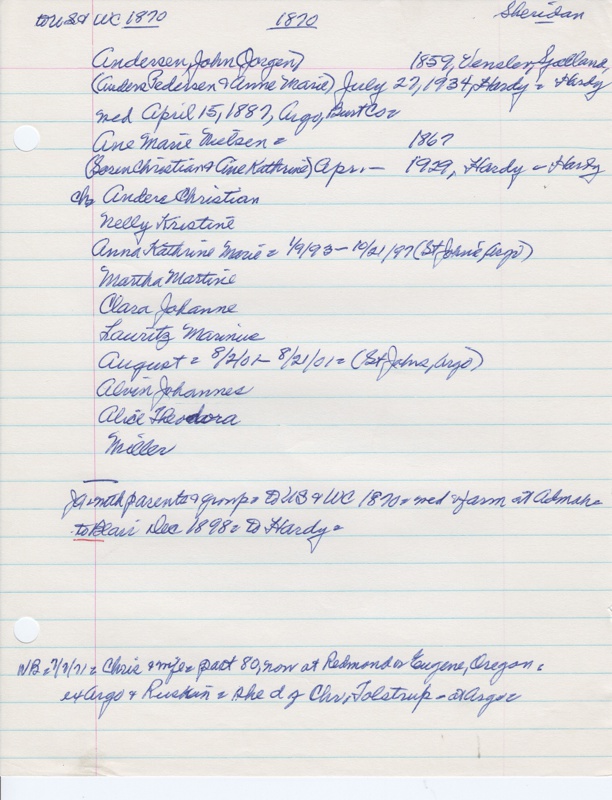 to US & WC 1870 1870 Sheridan
Andersen, John (Jorgen) 1859, Vensler, Sjalland
(Anders Pedersen & Anne Marie) July 27, 1934, Hardy = Hardy
med April 15, 1887, Argo, Burt Co =
Ane Marie Nielsen = 1867
(Soren Christian & Ane Kathrine) Apr. — 1929, Hardy — Hardy
ch = Anders Christian
Nelly Kristine
Anna Kathrine Marie = 1/9/93 — 10/21/97 (St Johns, Argo)
Martha Martine
Clara Johanne
Lauritz Marinus
August = 8/2/01 — 8/21/01 = (St Johns, Argo)
Alvin Johannes
Alice Theodora
Miller
with parents & group = to US & WC 1870 = med & farm at Admah =
to Blair Dec 1898 = to Hardy =
NB = 7/7/71 = Chris & wife = past 80, now at Redmond or Eugene, Oregon =
ex Argo & Ruskin = she d of Chr. Tolstrup — at Argo =